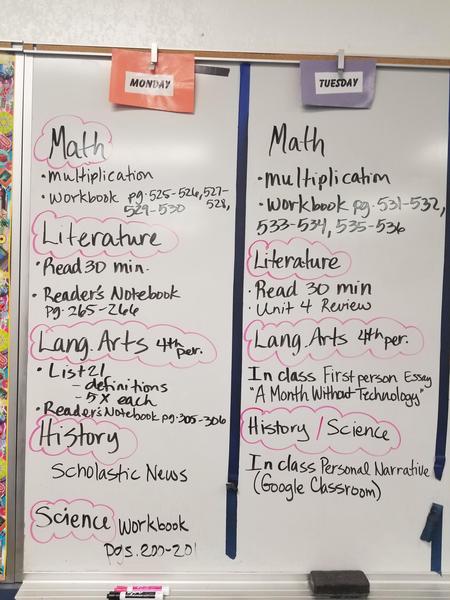 MONDAY
Math
• multiplication
• workbook pg. 525-526, 527-
528,
529-530
Literature
• Read 30 min.
• Reader's Notebook
pg. 265-266
Lang. Arts 4th per.
• List 21
- definitions
- 5 x each
• Reader's Notebook pg. 305-306
History
Scholastic News
Science Workbook
pgs. 200-201
TUESDAY
Math
• multiplication
• workbook pg. 531-532,
533-534, 535-536
Literature
• Read 30 min
• Unit 4 Review
Lang. Arts 4th per.
In class First person Essay
"A Month Without Technology"
History / Science
In class Personal Narrative
(Google Classroom)